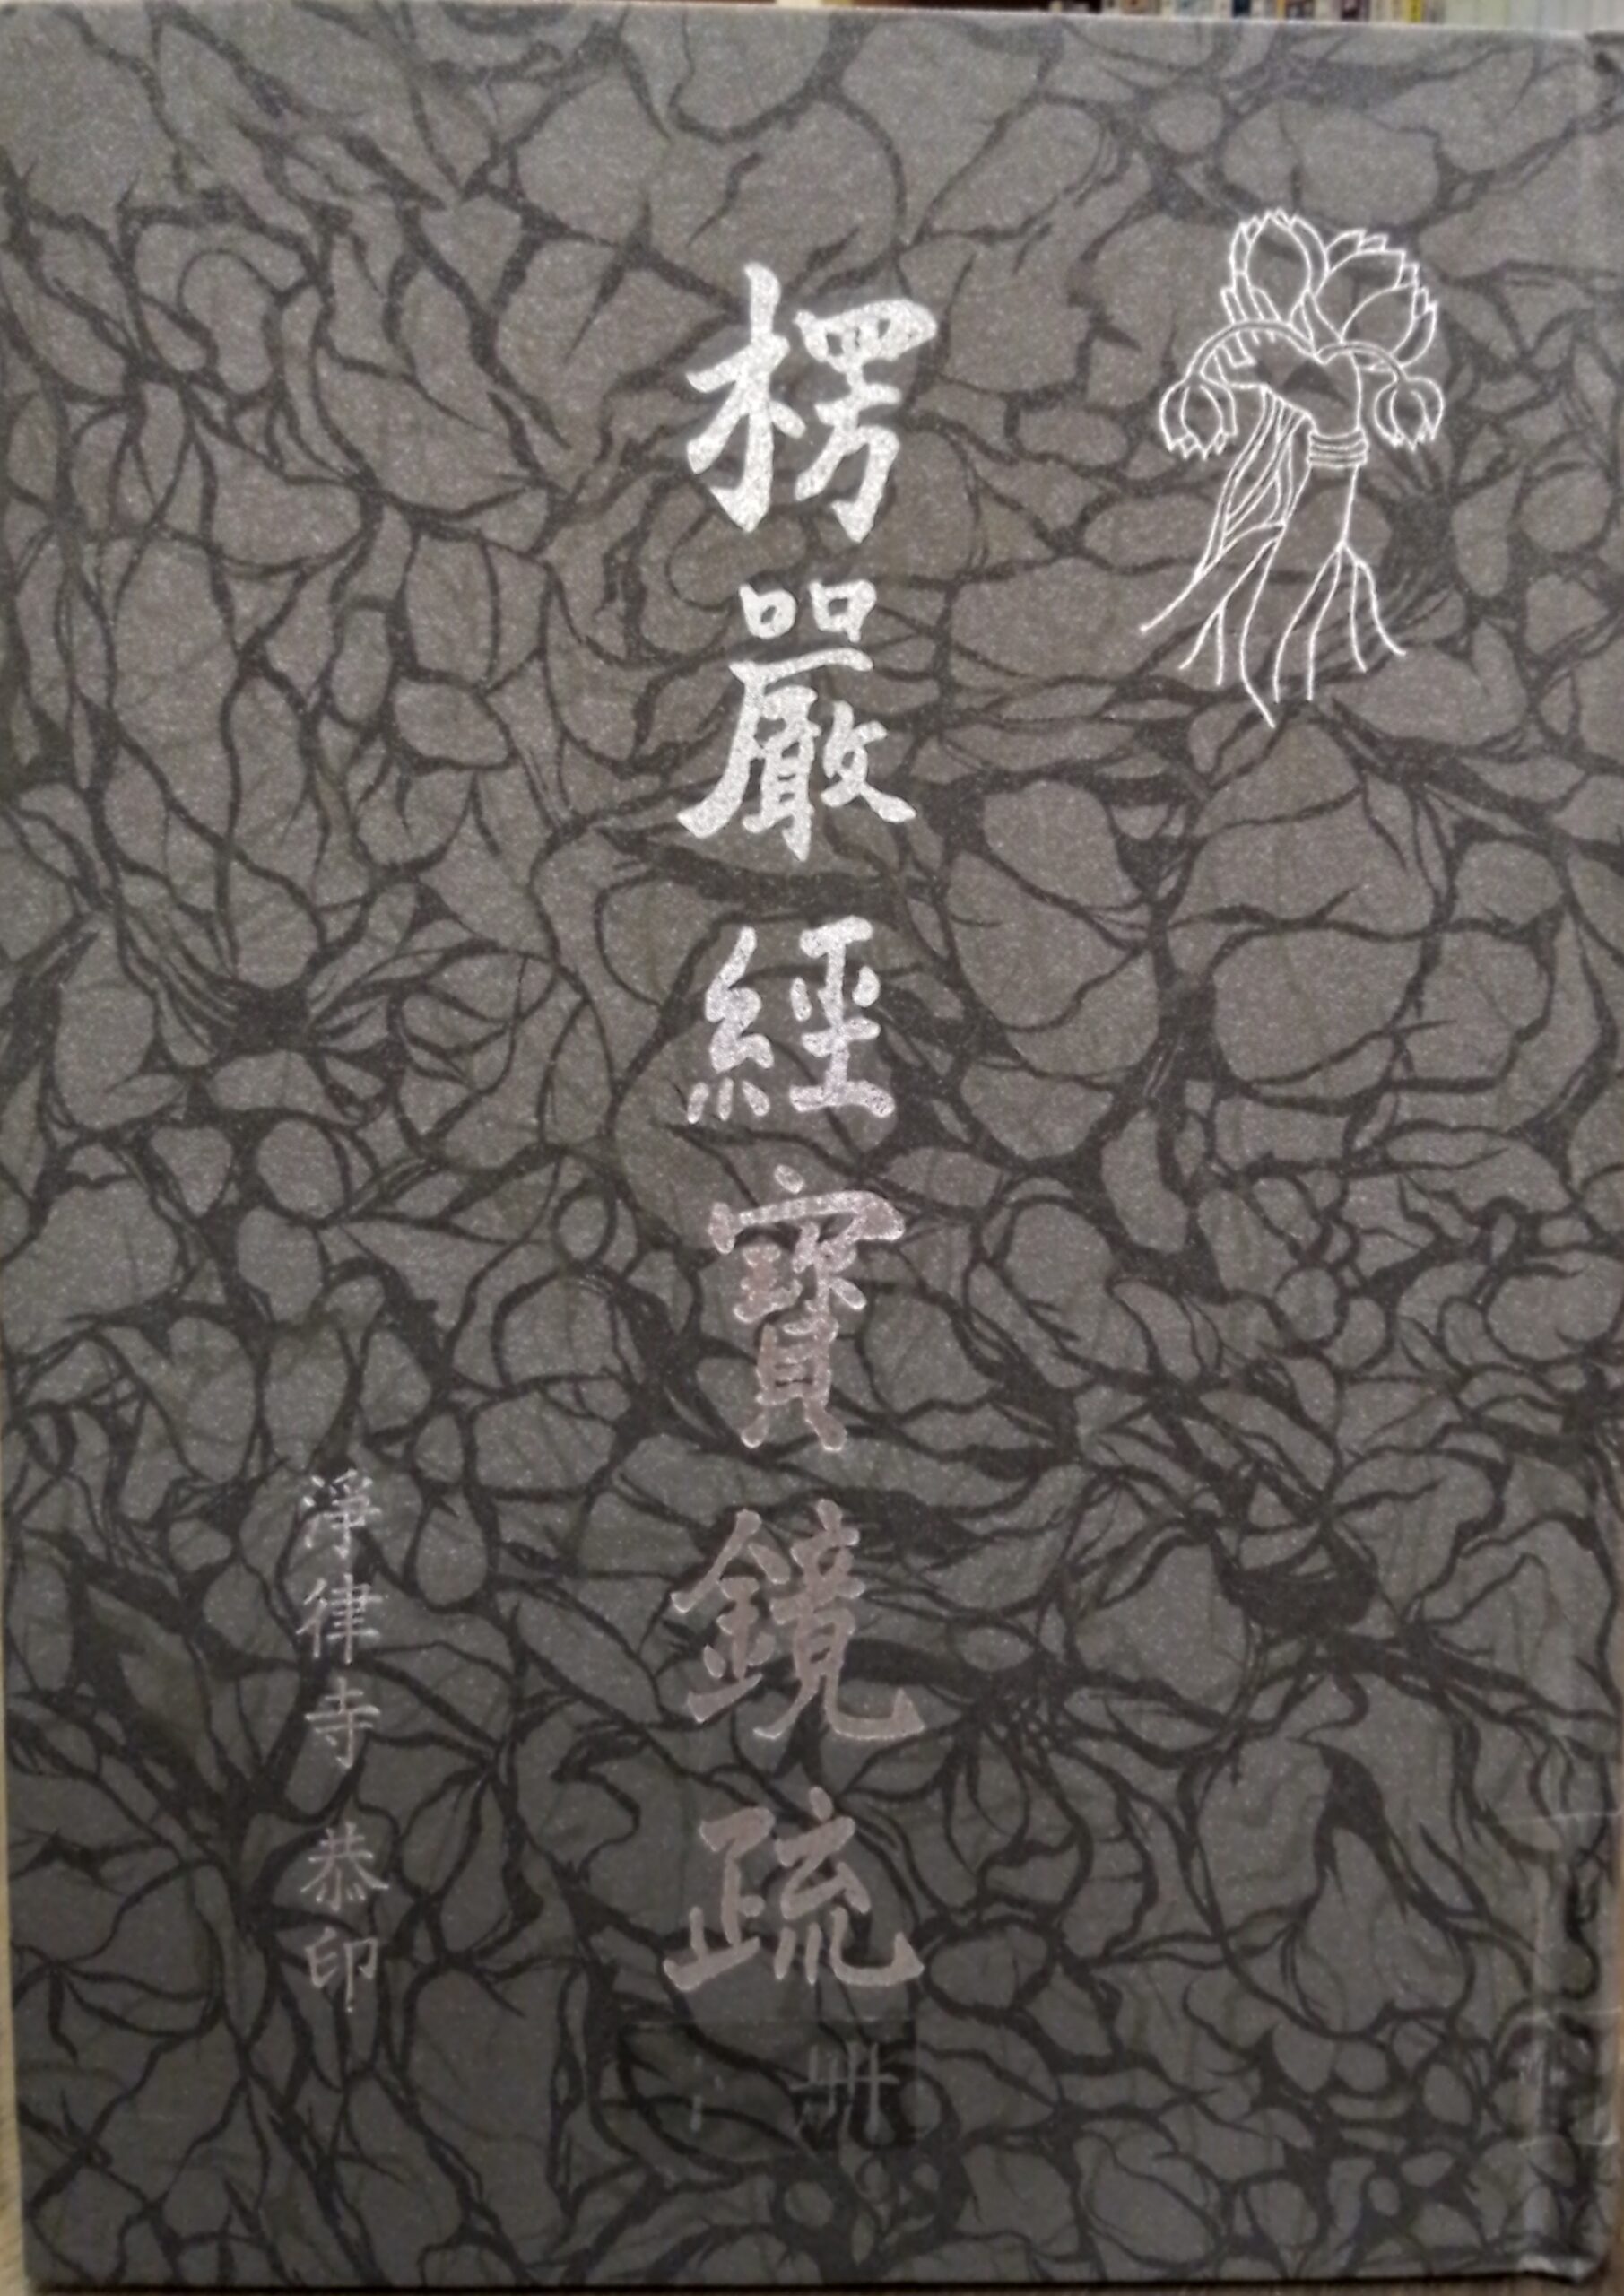 楞嚴經寶鏡疏
冊
淨律寺 恭印